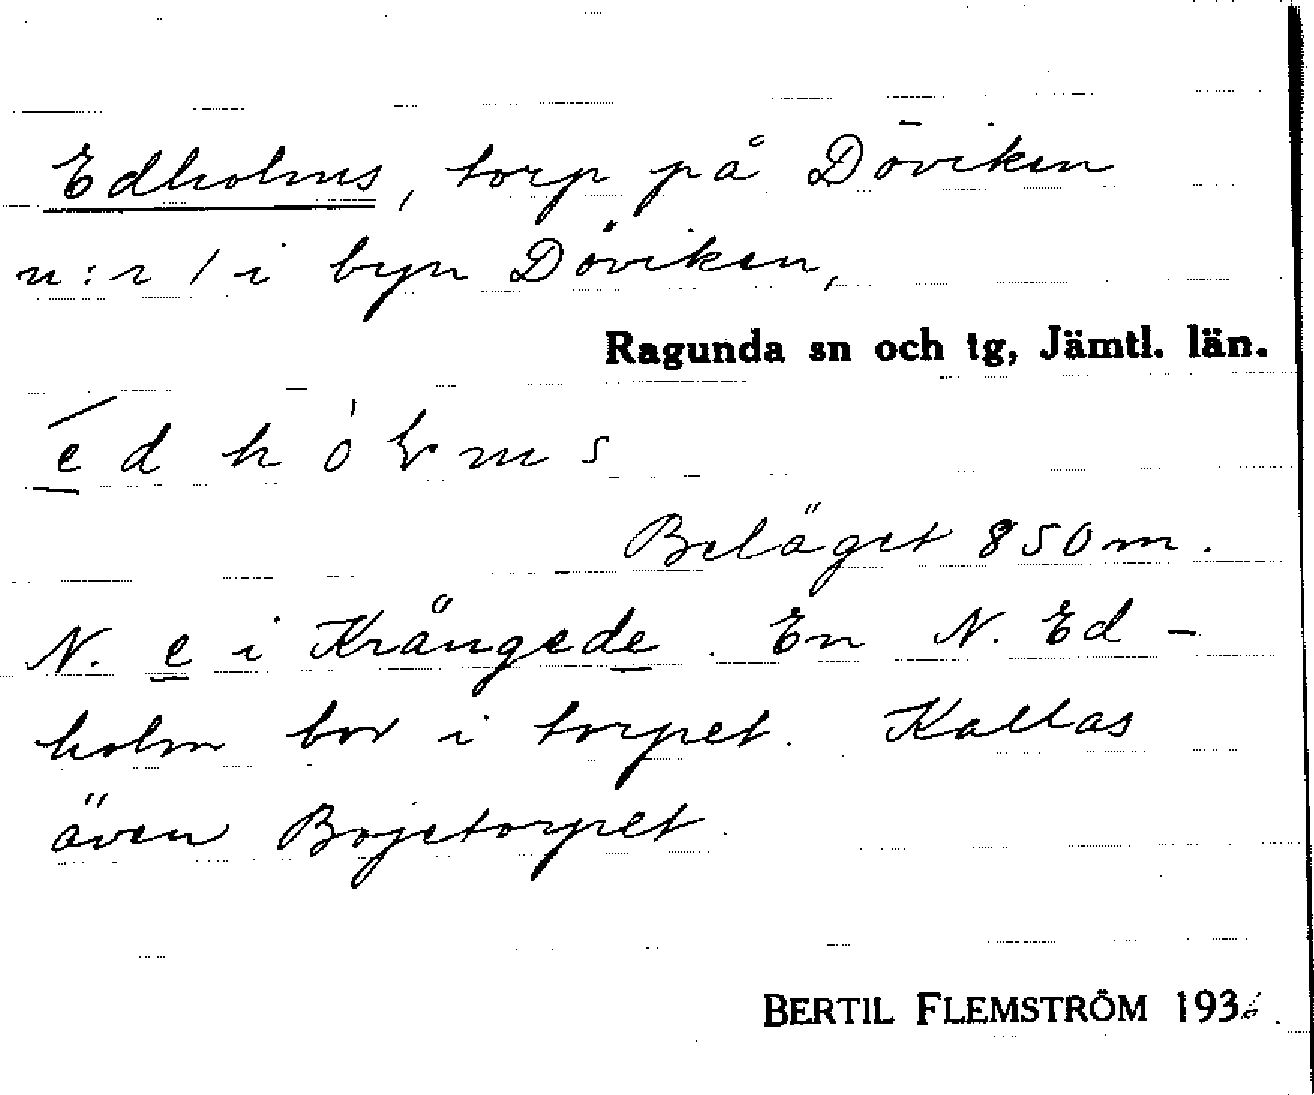 Edholms, torp på Döviken
n:r 1 i byn Döviken,
Ragunda sn och tg, Jämtl. län.
edhólms
Beläget 850 m.
N. e i Krångede. En N. Ed-
holm bor i torpet. Kallas
även Bojetorpet.
BERTIL FLEMSTRÖM 1936.